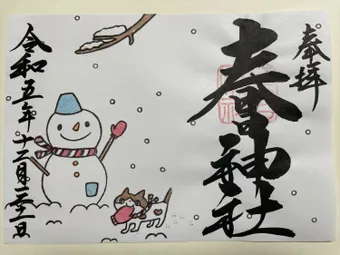 奉拝
春日神社
令和五年十二月二十二日